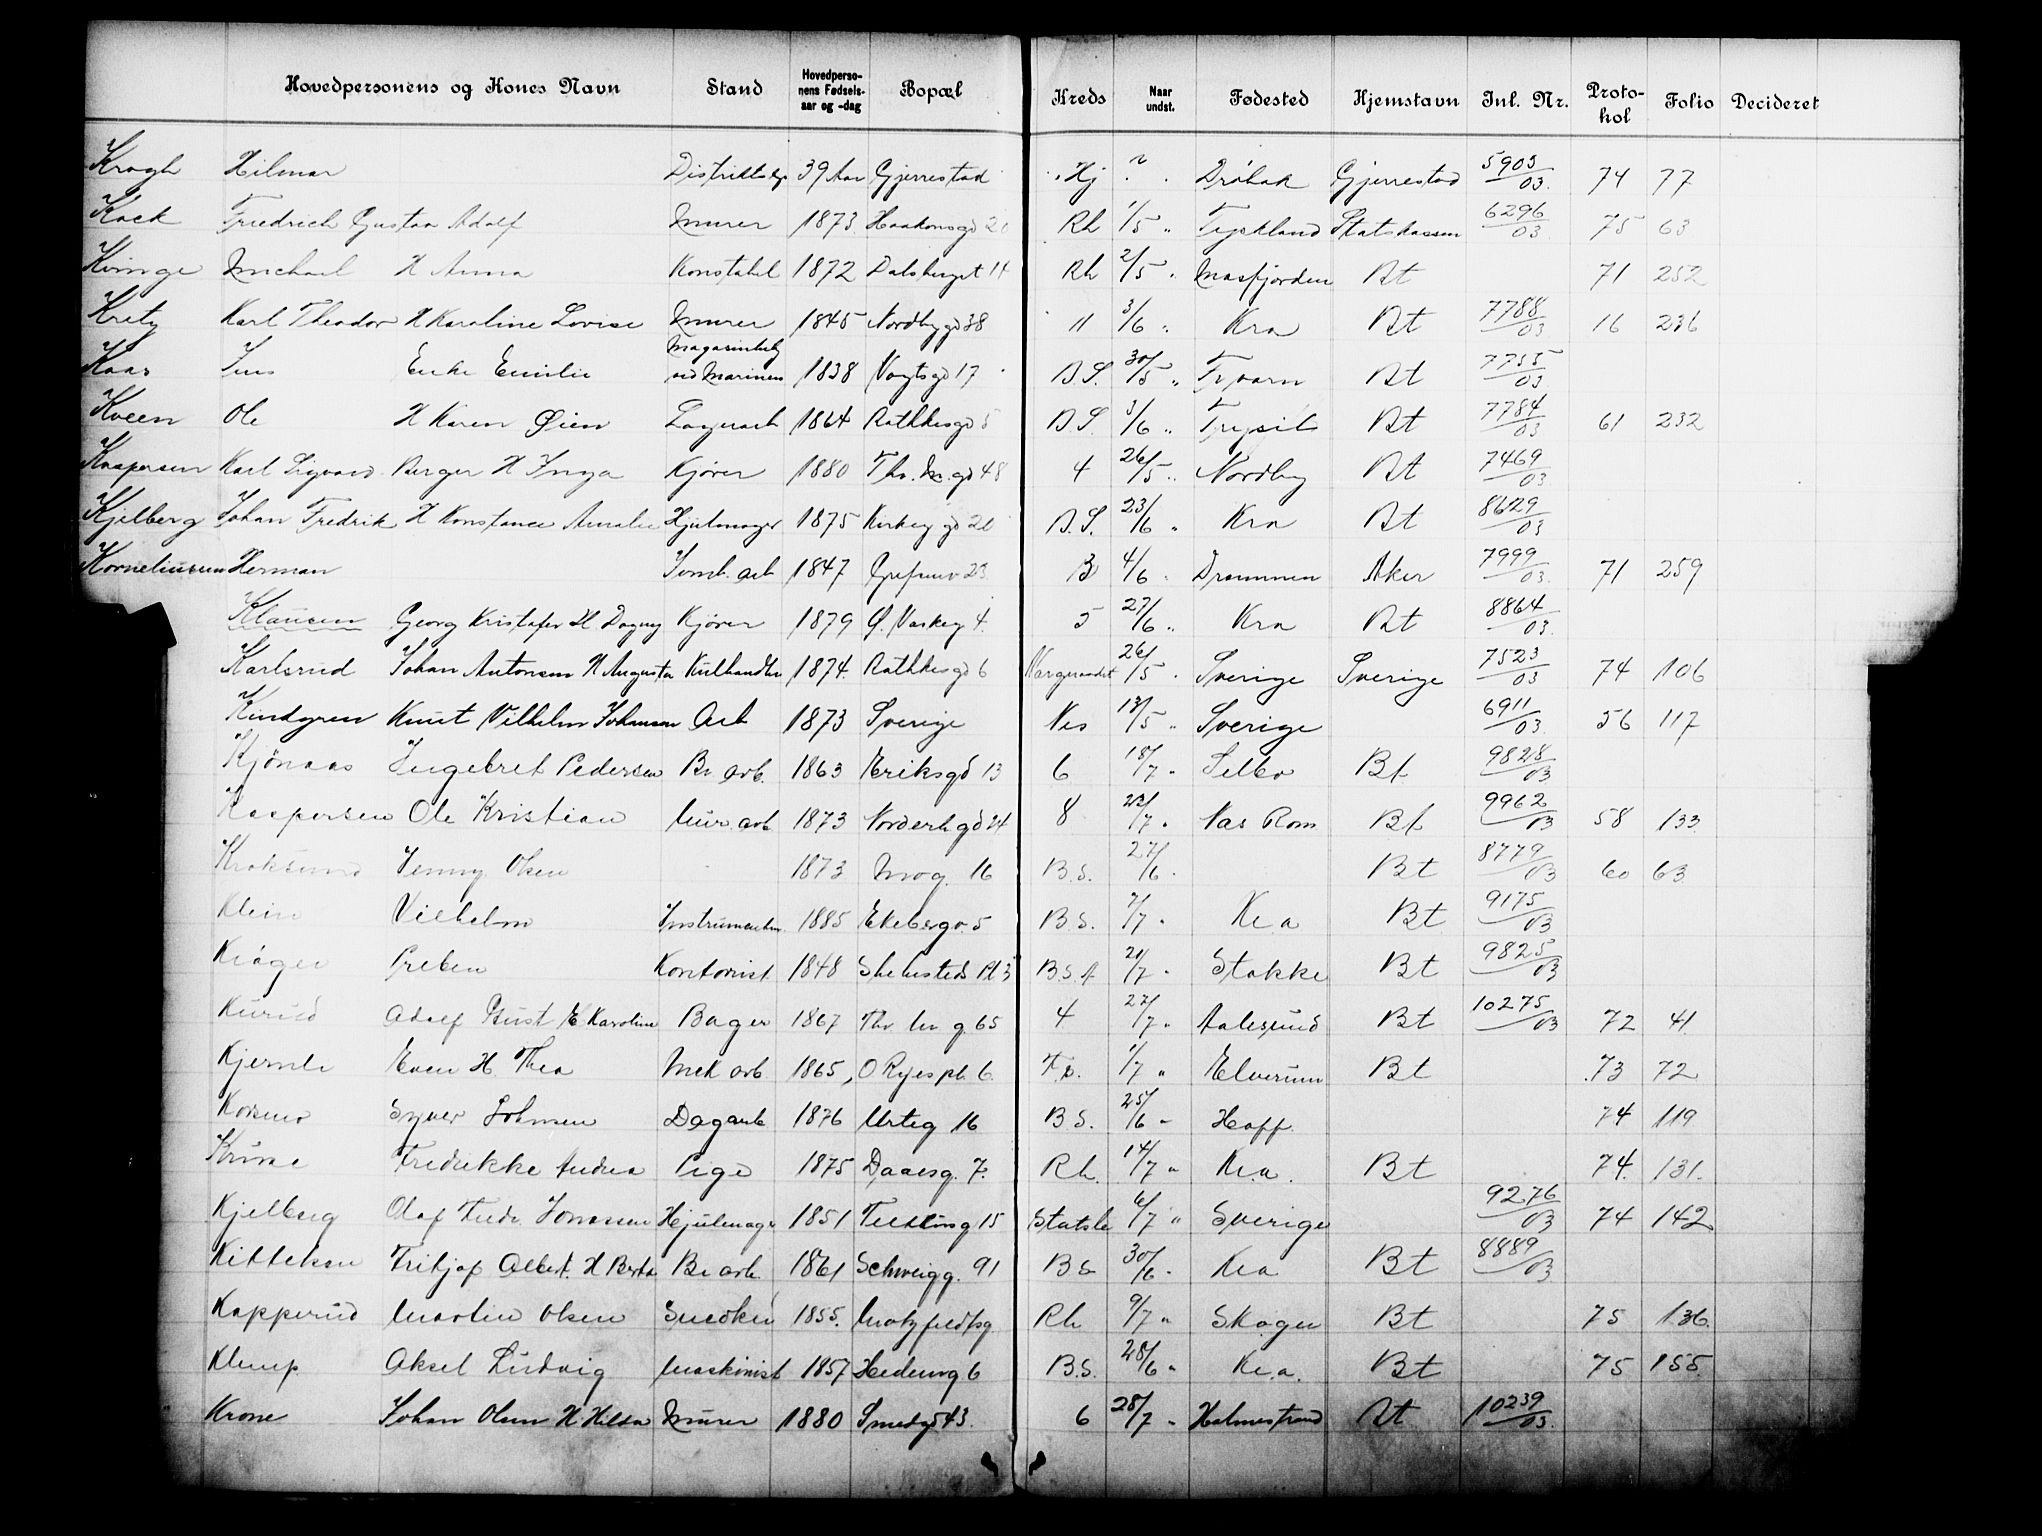 Hovedpersonens og Kones Navn Stand Hovedperso-nens Fødsels-aar og -dag Bopæl Kreds Naar undst. Fødested Hjemstavn Inl. Nr. Proto-kol Folio Decideret
Krogh Hilmar 39 Aar Gjerrestad Hj Drøbak Gjerrestad 5903/03. 74 77
Kock Friedrich Gustav Adolf Murer 1873 Haakonsgd Rh 1/5 " Tyskland Statskassen 6296/03 75 63
Kvinge Michael H Anna Konstabel 1872 Dalsberget 14 Rh 2/5 " Masfjorden Bt 71 252
Kretz Karl Theodor H Karoline Lovise Murer 1845 Nordbygd 38 11 3/6 " Kra Bt 7788/03 16 236
Kaas Jens Enke Emilie ved Marinen 1838 Vogtsgd 17 B.S. 30/5 " Bt 7755/03
Kveen Ole H Karen Øien Lagerarb 1864 Rathkesgd 5 B.S. 3/6 " Trysil Bt 7784/03 61 232
Kaspersen Karl Sigvard Berger H Inga Kjører 1880 Th. M. gd 48 4 26/5 " Nordby Bt 7469/03
Kjelberg Johan Fredrik H Konstance Amalie Hjulmager 1875 Kirkeg gd 20 B.S. 23/6 " Kra Bt 8629/03
Korneliussen Herman Tomt. arb 1847 Grefsenv 23 B 4/6 " Drammen Aker 7999/03. 71 259
Klausen Georg Kristofer H Dagny Kjører 1879 Ø. Vaskeg 4. 5 27/6 " Kra Bt 8864/03.
Karlsrud Johan Antonsen H Augusta Kulhandler 1874. Rathkesgd 6 26/5 " Sverige Sverige 7523/03 74 106
Kindgren Knut Vilhelm Johansen Arb 1873 Sverige Nes 13/5 " Sverige 6911/03. 56 117
Kjönaas Ingebret Pedersen Br arb. 1863 Eriksgd 13 6 18/7 " Selbo Bt. 9828/03
Kaspersen Ole Kristian Mur. arb 1873 Norderh gd 24 8 22/7 " Nas Rom Bt. 9962/03 58 133
Kroksund Jenny Olsen 1873 Mog. 16 B.S. 27/6 " Bt 8779/03 60 63
Klein Vilhelm Instrumentm. 1885 Ekebergv. 5 B.S. 7/7 " Kr.a Bt 9175/03
Krøger Preben Kontorist 1848 Pl 3 B.S.A 21/7 " Stokke Bt 9825/03
Adolf Gust E Karoline Bager 1867 Thv M g. 65 4 27/7 " Aalesund Bt 10275/03 72 41
Kjernli Even H. Thea Mek arb 1865, O Ryes pl. 6. 1/7 " Elverum Bt 73 72
Korsmo Syver Johnsen Dagarb 1876 Urteg 16 B.S. 25/6 " Hoff. 74 119
Fredrikke Andrea Pige 1875 Daaesg. 7. Rh. 14/7 " Kr.a. Bt 74. 131.
Kjelberg Olaf Fredr. Jonassen Hjulmager 1851 15 Statsk 6/7 " Sverige 9276/03 74 142
Kittelsen Fritjof Albert. H Berta Br arb. 1861 Schweigg. 91 BS 30/6 " Kra Bt 8889/03
Kapperud Martin Olsen Snedker 1855. Motzfeldtsg Rh 9/7 " Skoger Bt 75 136.
Klemp Aksel Ludvig Maskinist 1857 Hedemg 6 B.S. 28/6 " Kr.a. Bt 75 155.
Krone Johan Olsen H Hilda Murer 1880 Smedgd 43. 6 28/7 " Holmestrand Bt 10239/03.